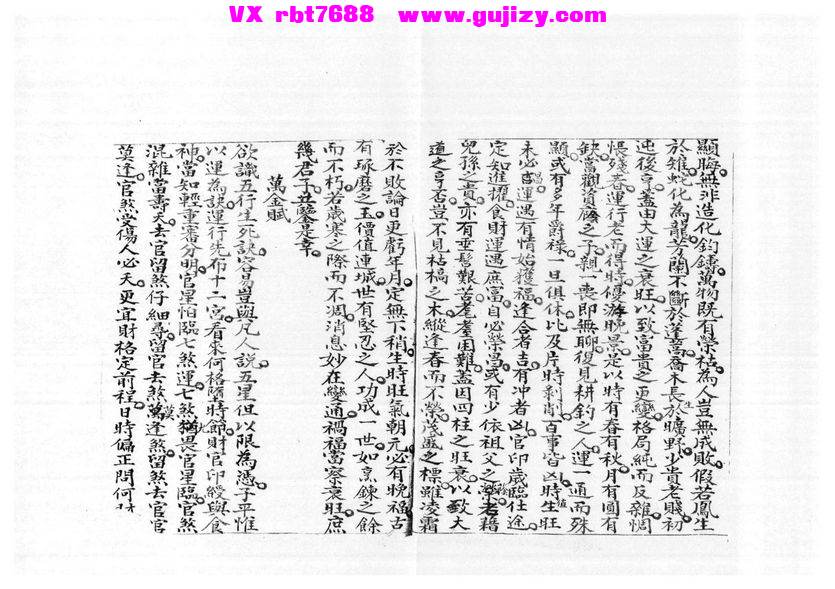 VX rbt7688 www.gujizy.com
顯晦無非造化鈞鎔萬物既有榮枯為人豈無成敗假若鳳生
於雉蛇化為龍芳蘭不斷於蓬蒿喬木長生於曠野少貴老賤初
迍後亨蓋由大運之衰旺以致富貴之更變格局純而反雜惆
悵殘春運行老而得時優游晚景是以時有春有秋月有圓有
缺嘗觀資廕之子親一喪即無聊復見耕釣之人運一通而殊
顯或有多年爵祿一旦俱休比及片時剝削百事皆凶時生旺
未必言運遇有情始獲福逢合者吉有冲者凶官印歲臨仕途
定知進擢食財運遇庶富自必榮昌或有少依祖父之榮老藉
兒孫之貴亦有垂髫艱苦耄耋困難蓋因四柱之旺衰以致大
運之亨否豈不見枯槁之木縱逢春而不榮茂盛之標雖凌霜
於不敗論日更虧年月定無下稍生時旺氣朝元必有晚福古
有琢磨之玉價值連城世有堅忍之人功成一世如烹鍊之餘
而不朽若歲寒之際而不凋消息妙在變通禍福當察衰旺庶
幾君子共鑒是幸
萬金賦
欲識五行生死訣容易豈與凡人說五星但以限為憑子平惟
以運為訣運行先布十二宮看來何格墮時節財官印綬與食
神當知輕重審分明官星怕臨七煞運七煞猶畏官星臨官煞
混雜當壽夭去官留煞仔細尋留官去煞莫逢煞留煞去官官
莫逢官煞受傷人必夭更宜財格定前程日時偏正問何財